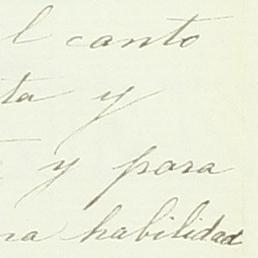 l canto
ta y
y para
na habilidad